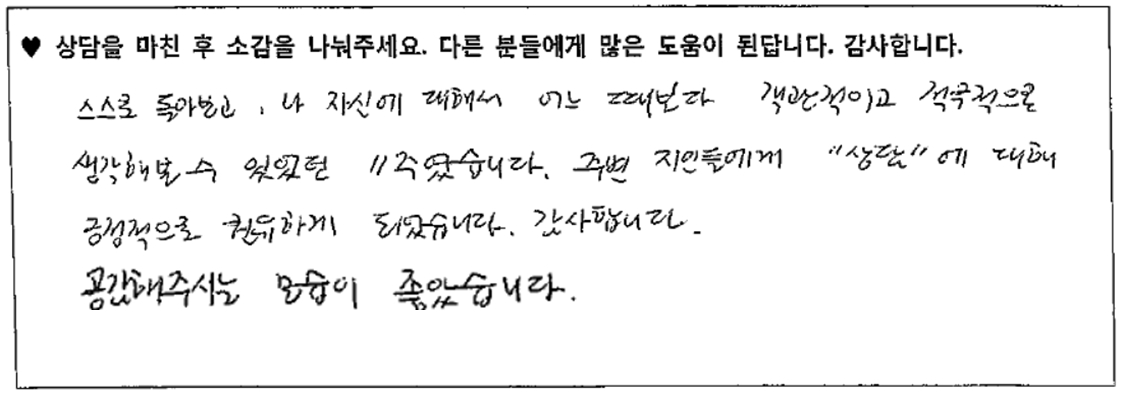 ♥ 상담을 마친 후 소감을 나눠주세요. 다른 분들에게 많은 도움이 된답니다. 감사합니다.
스스로 돌아보고, 나 자신에 대해서 어느 때보다 객관적이고 적극적으로
생각해볼 수 있었던 11주였습니다. 주변 지인들에게 "상담"에 대해
긍정적으로 권유하게 되었습니다. 감사합니다.
공감해주시는 모습이 좋았습니다.